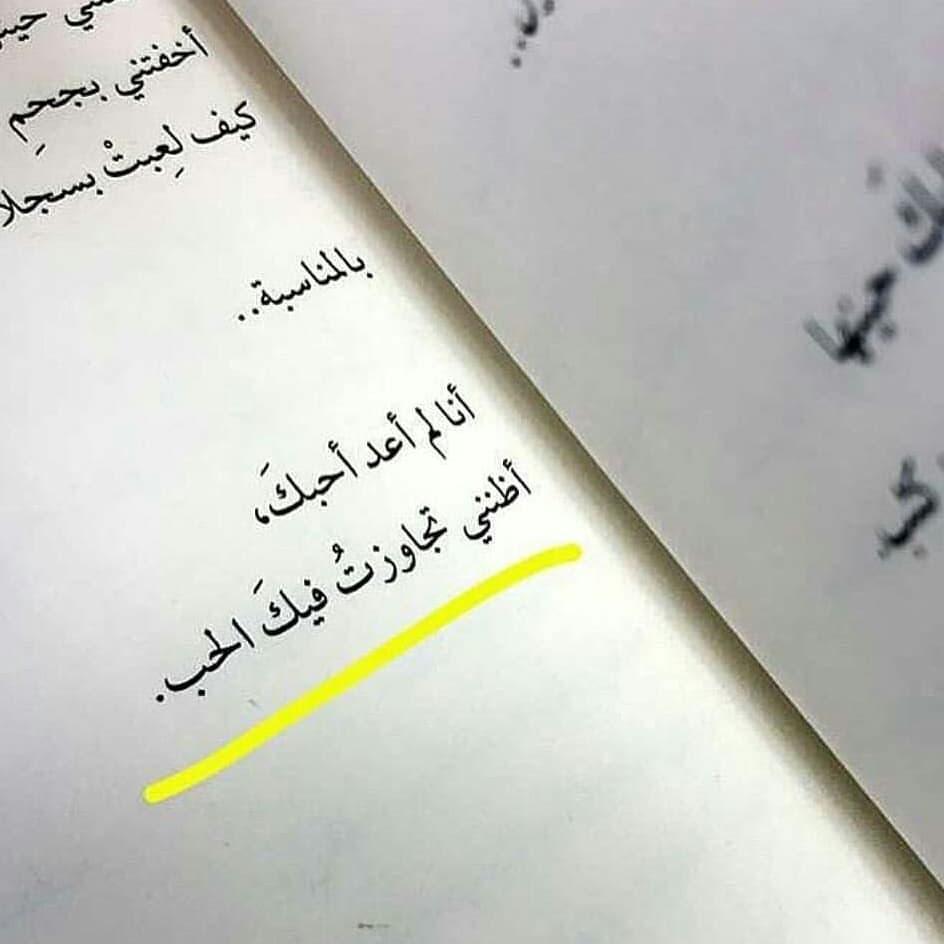 أخفتني بجحمِ
كيف لِعبتْ بسجلا
بالمناسبة..
أنا لم أعد أحبكَ،
أظنني تجاوزتُ فيكَ الحب.
حينها